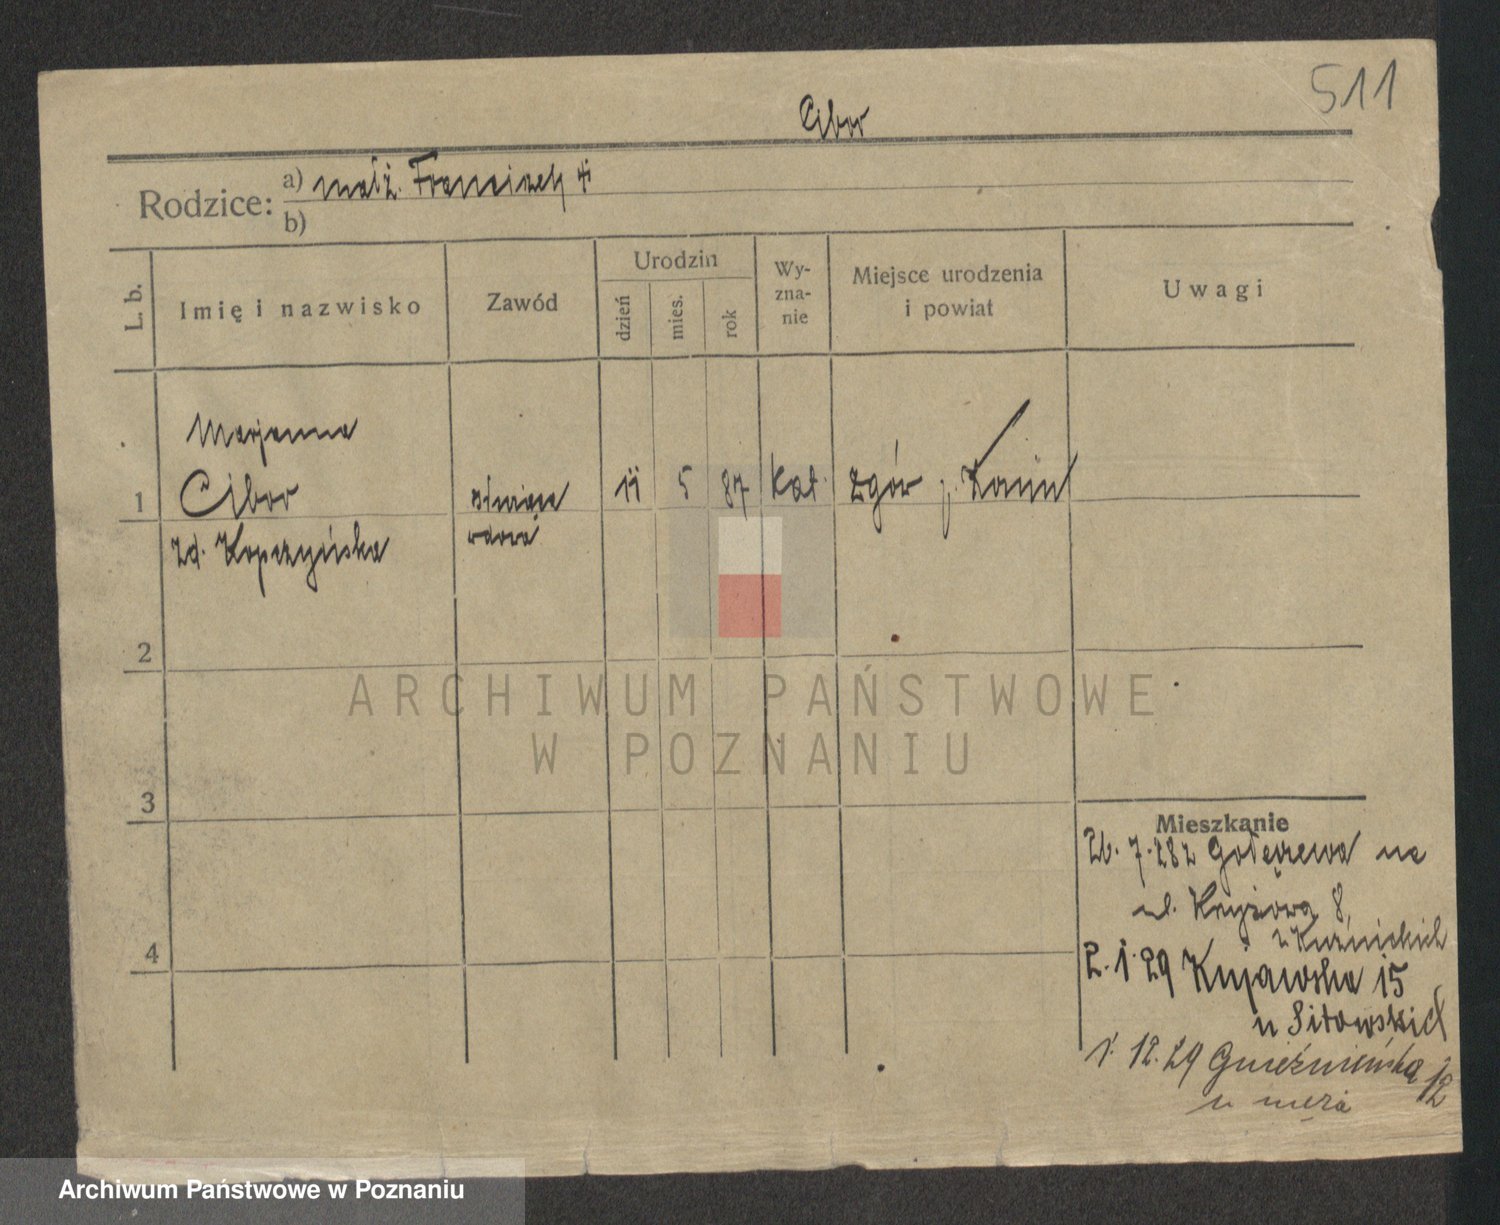 511
Cibor
Rodzice: a) małż. Franciszek
b)
L. b. Imię i nazwisko Zawód Urodzin dzień mies. rok Wyznanie Miejsce urodzenia i powiat Uwagi
Marjanna
1 Cibor 11 5 87 kat. Zgór p. Konin
zd. Kopczyńska
2
ARCHIWUM PAŃSTWOWE
W POZNANIU
3
Mieszkanie
26. 7. 282 na
ul. Kryżowa 8,
4
2. 1. 29 Kujawska 15
u
1. 12. 29 Gnieźnieńska 12
u męża
Archiwum Państwowe w Poznaniu